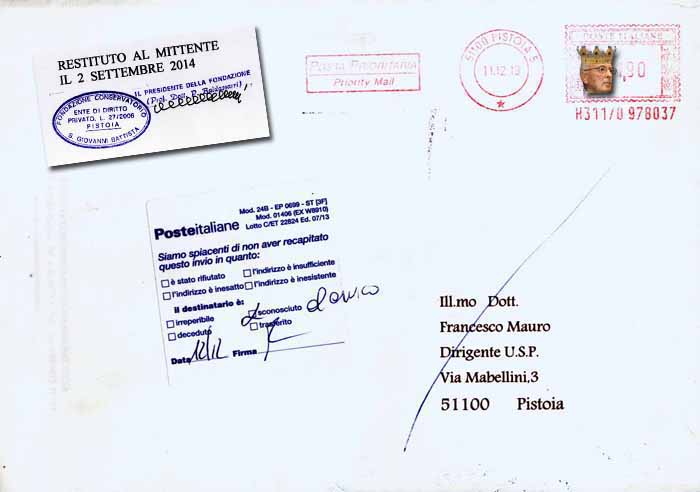 RESTITUTO AL MITTENTE
IL 2 SETTEMBRE 2014
IL PRESIDENTE DELLA FONDAZIONE
(Prof. Dott.
FONDAZIONE CONSERVATORIO
ENTE DI DIRITTO
PRIVATO, L. 27/2006
PISTOIA
S. GIOVANNI BATTISTA
POSTA PRIORITARIA
Priority Mail
51100 PISTOIA 5
11.12.13
POSTE ITALIANE
,90
H311/0 978037
Mod. 24B - EP 0699 - ST [3F]
Mod. 01406 (EX W8910)
Lotto C/ET 22824 Ed. 07/13
Posteitaliane
Siamo spiacenti di non aver recapitato
questo invio in quanto:
è stato rifiutato l'indirizzo è insufficiente
l'indirizzo è inesatto l'indirizzo è inesistente
Il destinatario è:
irreperibile sconosciuto
deceduto trasferito
Data 12/12 Firma
Ill.mo Dott.
Francesco Mauro
Dirigente U.S.P.
Via Mabellini,3
51100 Pistoia